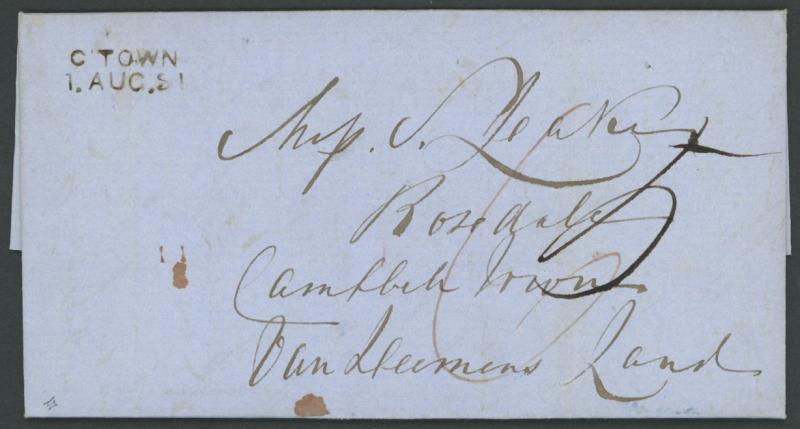 C'TOWN
1.AUG.51
Miss. S. Leake
Rosedale
Campbell Town
Van Diemens Land
5